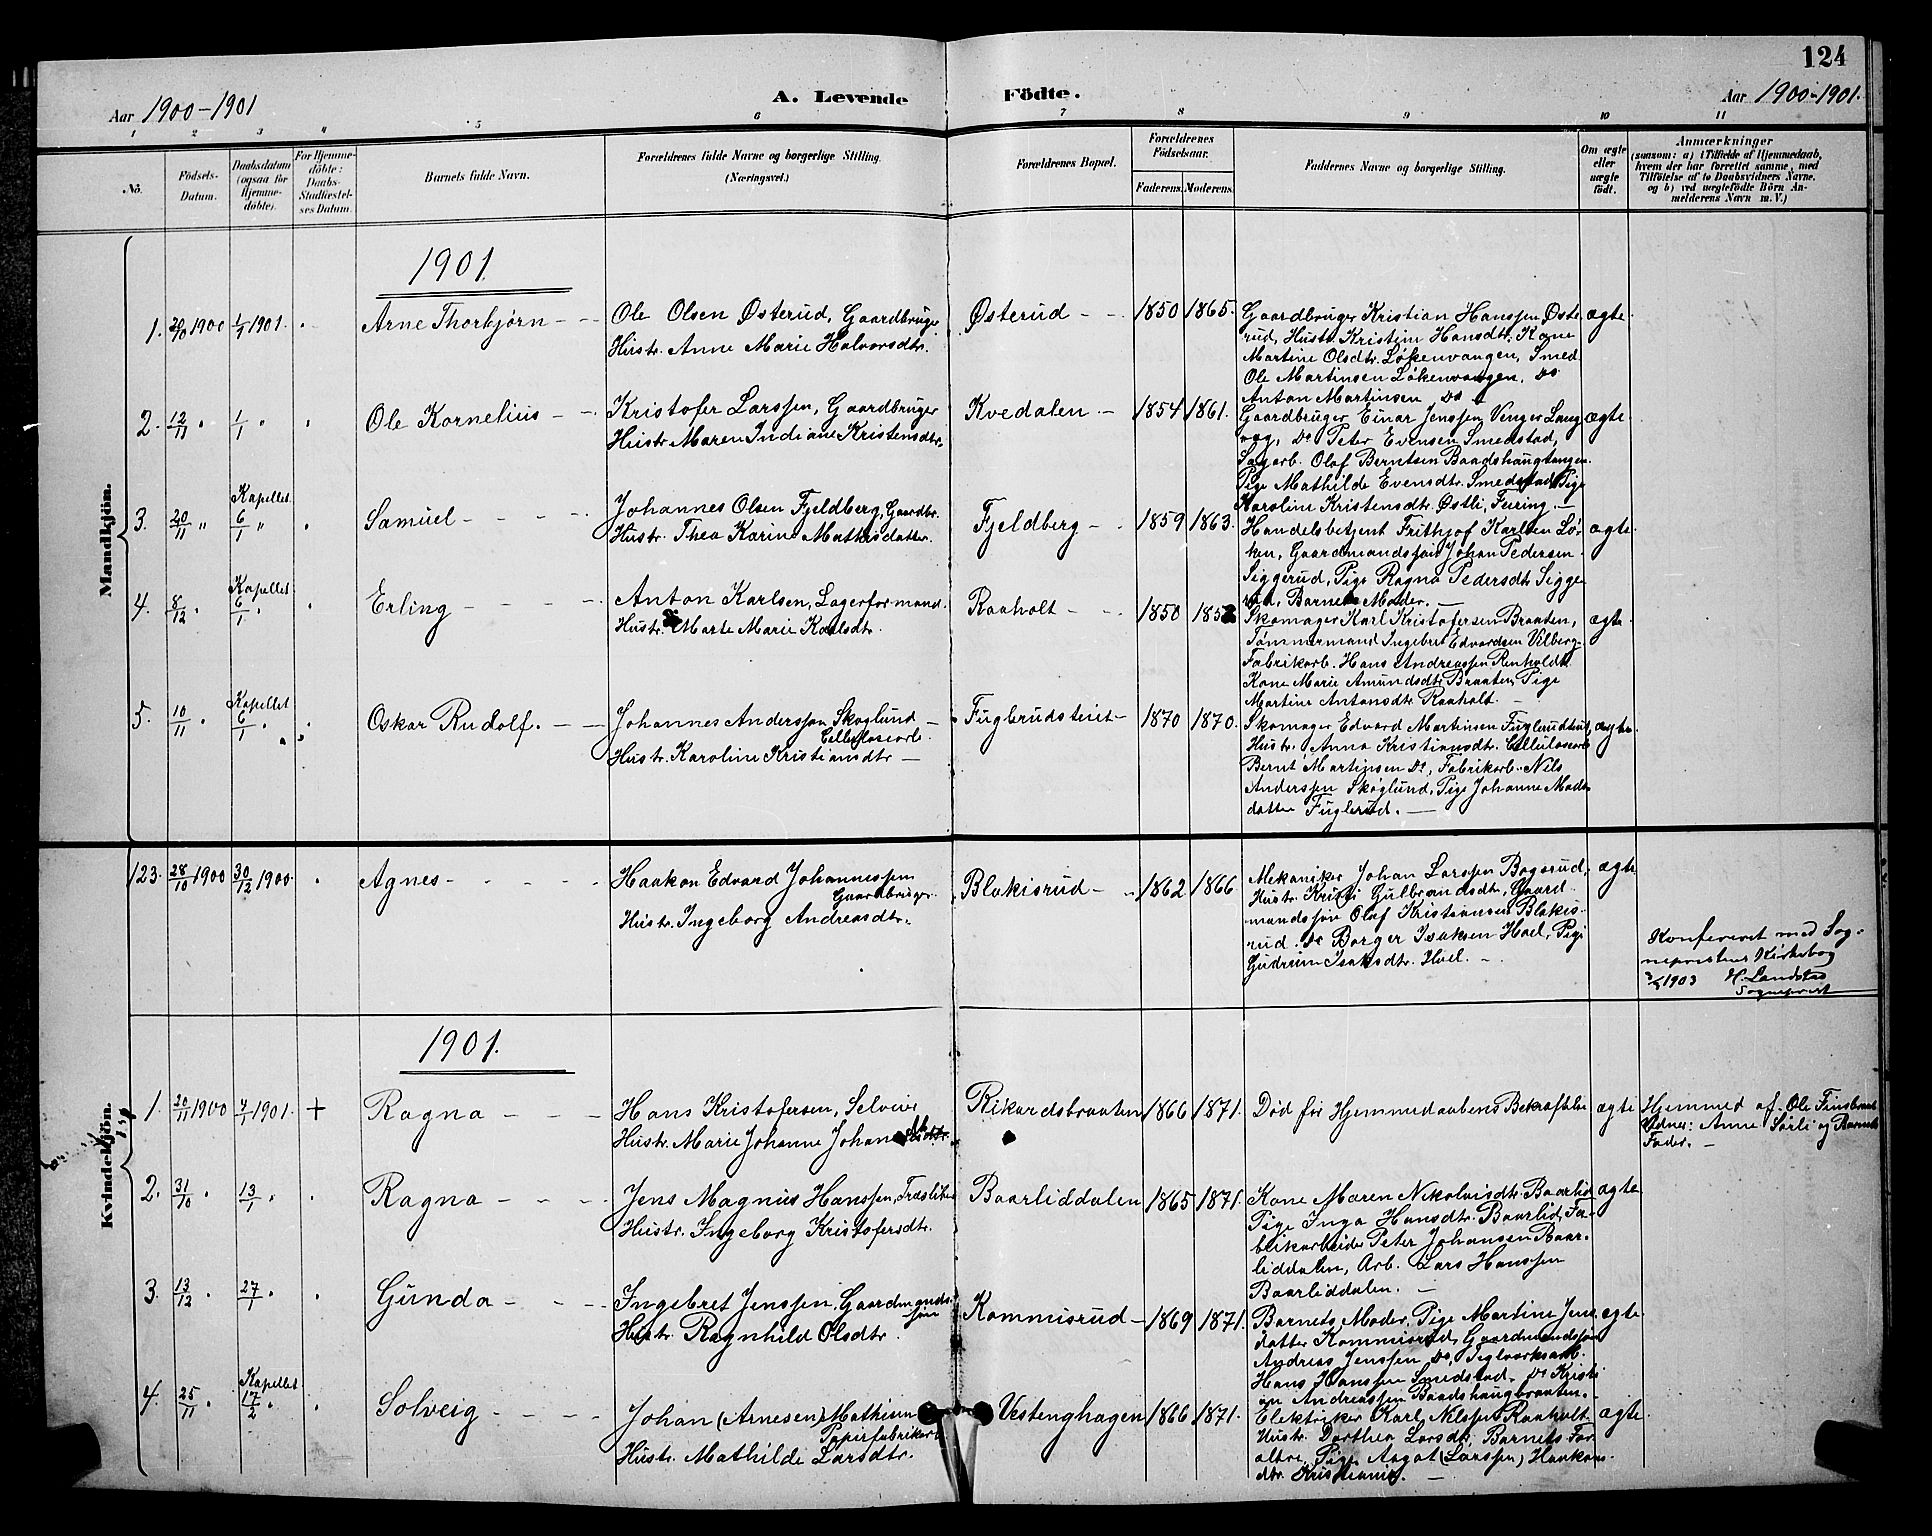 124
Aar 1900-1901
A. Levende Födte.
Aar 1900-1901.
1 2 3 4 5 6 7 8 9 10 11
No.
Födsels-
Datum.
Daabsdatum
(ogsaa for
Hjemme-
döbte).
For Hjemme-
döbte:
Daabs-
Stadfæstel-
ses Datum.
Barnets fulde Navn.
Forældrenes fulde Navne og borgerlige Stilling.
(Næringsvei.)
Forældrenes Bopæl.
Forældrenes
Födselsaar.
Faderens. Moderens.
Faddernes Navne og borgerlige Stilling.
Om ægte
eller
uægte
födt.
Anmærkninger
(saasom: a) i Tilfælde af Hjemmedaab,
hvem der har forrettet samme, med
Tilföielse af to Daabsvidners Navne,
og b) ved uægtefödte Börn An-
melderens Navn m. V.)
Mandkjön.
1901.
1. 1900 1/1 1901. Arne Thorbjørn
Ole Olsen Østerud, Gaardbruger
Hustr. Anne Marie Halvorsdtr.
Østerud 1850 1865.
Gaardbruger Kristian Hanssen Øste
rud, Hustr. Kristine Hansdtr, Kone
Martine Olsdtr. Løkenvangen, Smed
Ole Martinsen Løkenvangen, Do
Anton Martinsen Do
ægte.
2. 12/11 " 1/1 " Ole Kornelius
Kristofer Larssen, Gaardbruger
Hustr. Maren Indiane Kristensdtr.
Kvedalen 1854 1861.
Gaardbruger Einar Jenssen Venger Lang
væg, Do Peter Evensen Smedstad,
Sagarb. Olaf Berntsen Baadshaugtangen.
Pige Mathilde Evensdtr. Smedstad, Pige
Karoline Kristensdtr. Østli, Feiring.
ægte
3. 20/11 " Kapellet 6/1 " Samuel
Johannes Olsen Fjeldberg, Gaardbr.
Hustr. Thea Karine Mathisdatter.
Fjeldberg 1859 1863.
Handelsbetjent Frithjof Karlsen Lø-
ken, Gaardmandssøn Johan Pedersen
Siggerud, Pige Ragna Pedersdtr Sigge
rud, Barnets Moder.
ægte.
4. 8/12 " Kapellet 6/1 " Erling
Anton Karlsen, Lagerformand.
Hustr. Marte Marie Karlsdtr.
Raaholt 1850
Skomager Karl Kristofersen Braaten,
Tømmermand Ingebret Edvardsen Vilberg
Fabrikarb. Hans Andreassen Renholdt
Kone Marie Amundsdtr Braaten, Pige
Martine Antonsdtr Raaholt.
ægte.
5. 10/11 " Kapellet 6/1 " Oskar Rudolf.
Johannes Anderssen Skoglund
Cellulosearb.
Hustr. Karoline Kristiansdtr
Fuglerudsteiet 1870 1870.
Skomager Edvard Martinsen Fuglerudteiet,
Hustr. Anna Kristiansdtr. Cellulosearb
Bernt Martinsen Do, Fabrikarb. Nils
Anderssen Skoglund, Pige Johanne Mads
datter Fuglerud.
ægte.
Kvindekjön.
123. 28/10 1900 30/12 1900. Agnes
Haakon Edvard Johannessen
Gaardbruger.
Hustr. Ingeborg Andreasdtr.
Blakisrud 1862 1866
Mekaniker Johan Larssen Bogsrud,
Hustr. Kristi Gulbrandsdtr, Gaard
mandssøn Olaf Kristiansen Blakis-
rud. Do Borger Isaksen Hoel, Pige
Gudrun Isaksdtr. Hoel.
ægte
Konfereret med Sog-
neprestens Kirkebog
1903 H. Landstad
Sogneprest
1901.
1. 30/11 1900 1901. + Ragna
Hans Kristofersen, Selveier
Hustr. Marie Johanne
Rikardsbraaten 1866 1871.
Død før Hjemmedaabens Bekræftelse
ægte
Hjemmed. af Ole Finsbraat
Vidner: Anne Sørli og Barnets
Fader.
2. 31/10 " 13/1 " Ragna
Jens Magnus Hanssen, Træsliber
Hustr. Ingeborg Kristofersdtr.
Baarliddalen 1865 1871.
Kone Maren Nikolaisdtr Baarlid
Pige Inga Hansdtr. Baarlid, Fa-
brikarbeider Peter Johansen Baar-
liddalen, Arb. Lars Hanssen
Baarliddalen.
ægte
3. 13/12 " 27/1 " Gunda
Ingebret Jenssen, Gaardmands-
søn
Hustr. Ragnhild Olsdtr.
Kommisrud 1869 1871.
Barnets Moder, Pige Martine Jens
datter Kommisrud, Gaardmandssøn
Andreas Jenssen Do, Teglværksarb.
Hans Hanssen Smedstad, Do Kristi
an Andreassen Baadshaugbraaten.
ægte
4. 25/11 " Kapellet 17/2 " Solveig
Johan (Arnesen) Mathisen
Papirfabrikarb
Hustr. Mathilde Larsdtr.
Vestenghagen 1866 1871.
Elektriker Karl Nilssen Raaholt
Hustr. Dorthea Larsdtr, Barnets For
ældre, Pige Aagot (Larssen) Haakons
dtr. Kristiania.
ægte.